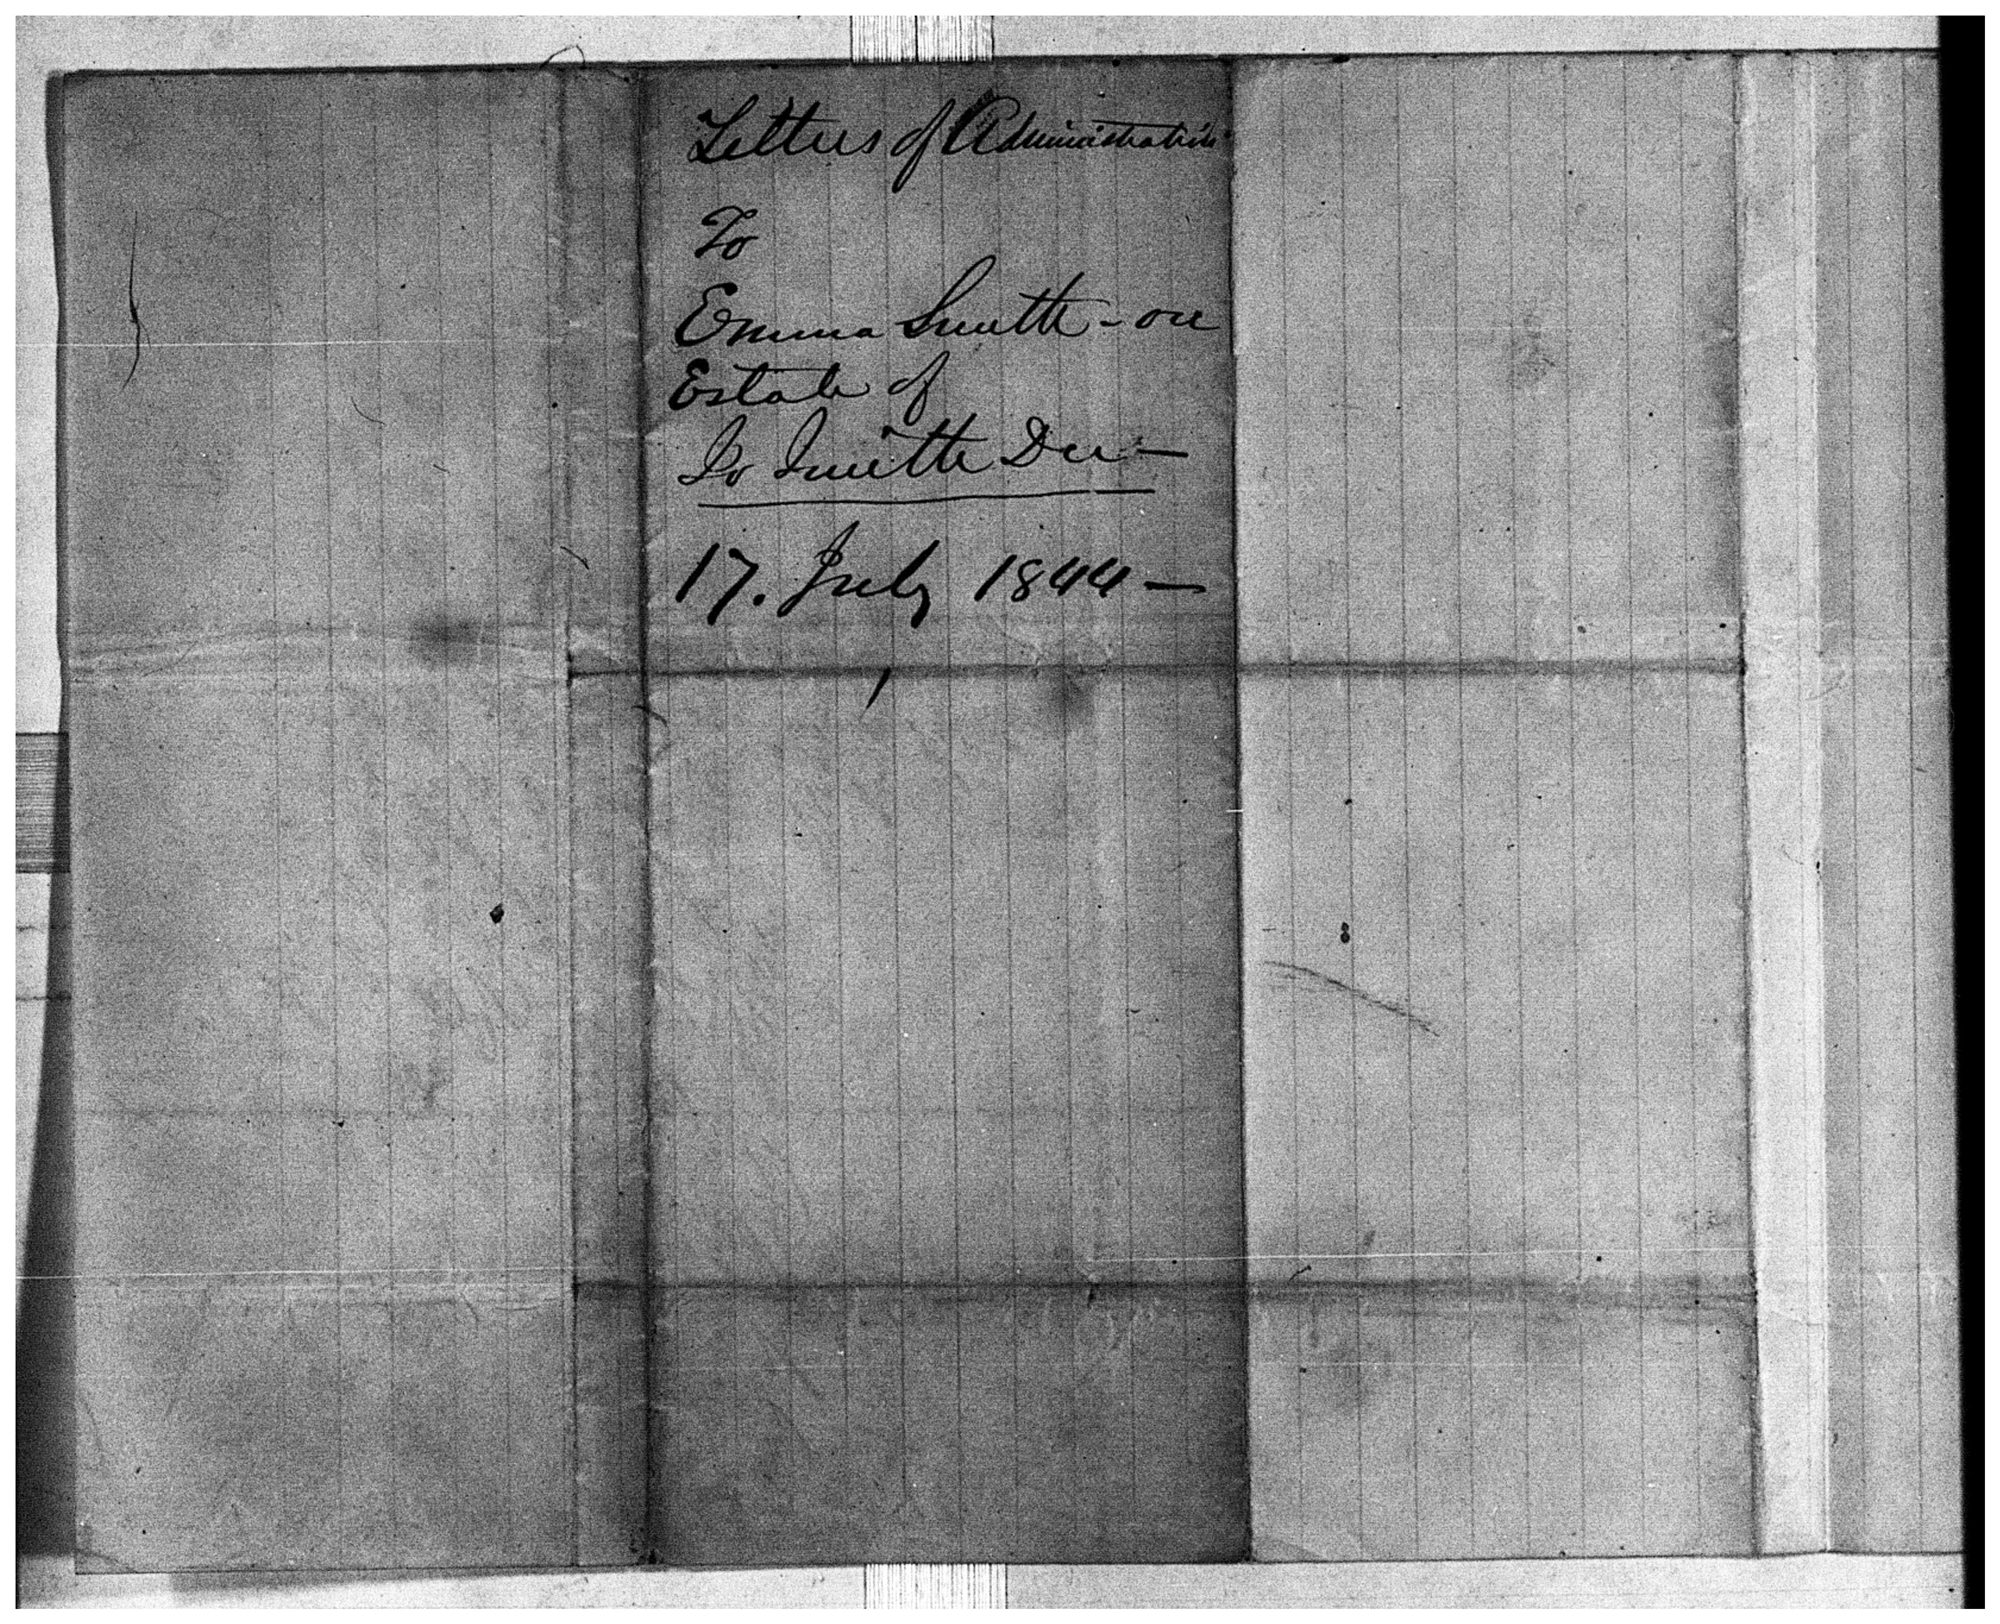 Letters of Administration
To
Emma Smith - on
Estate of
Jo Smith Dec -
17. July 1844 -